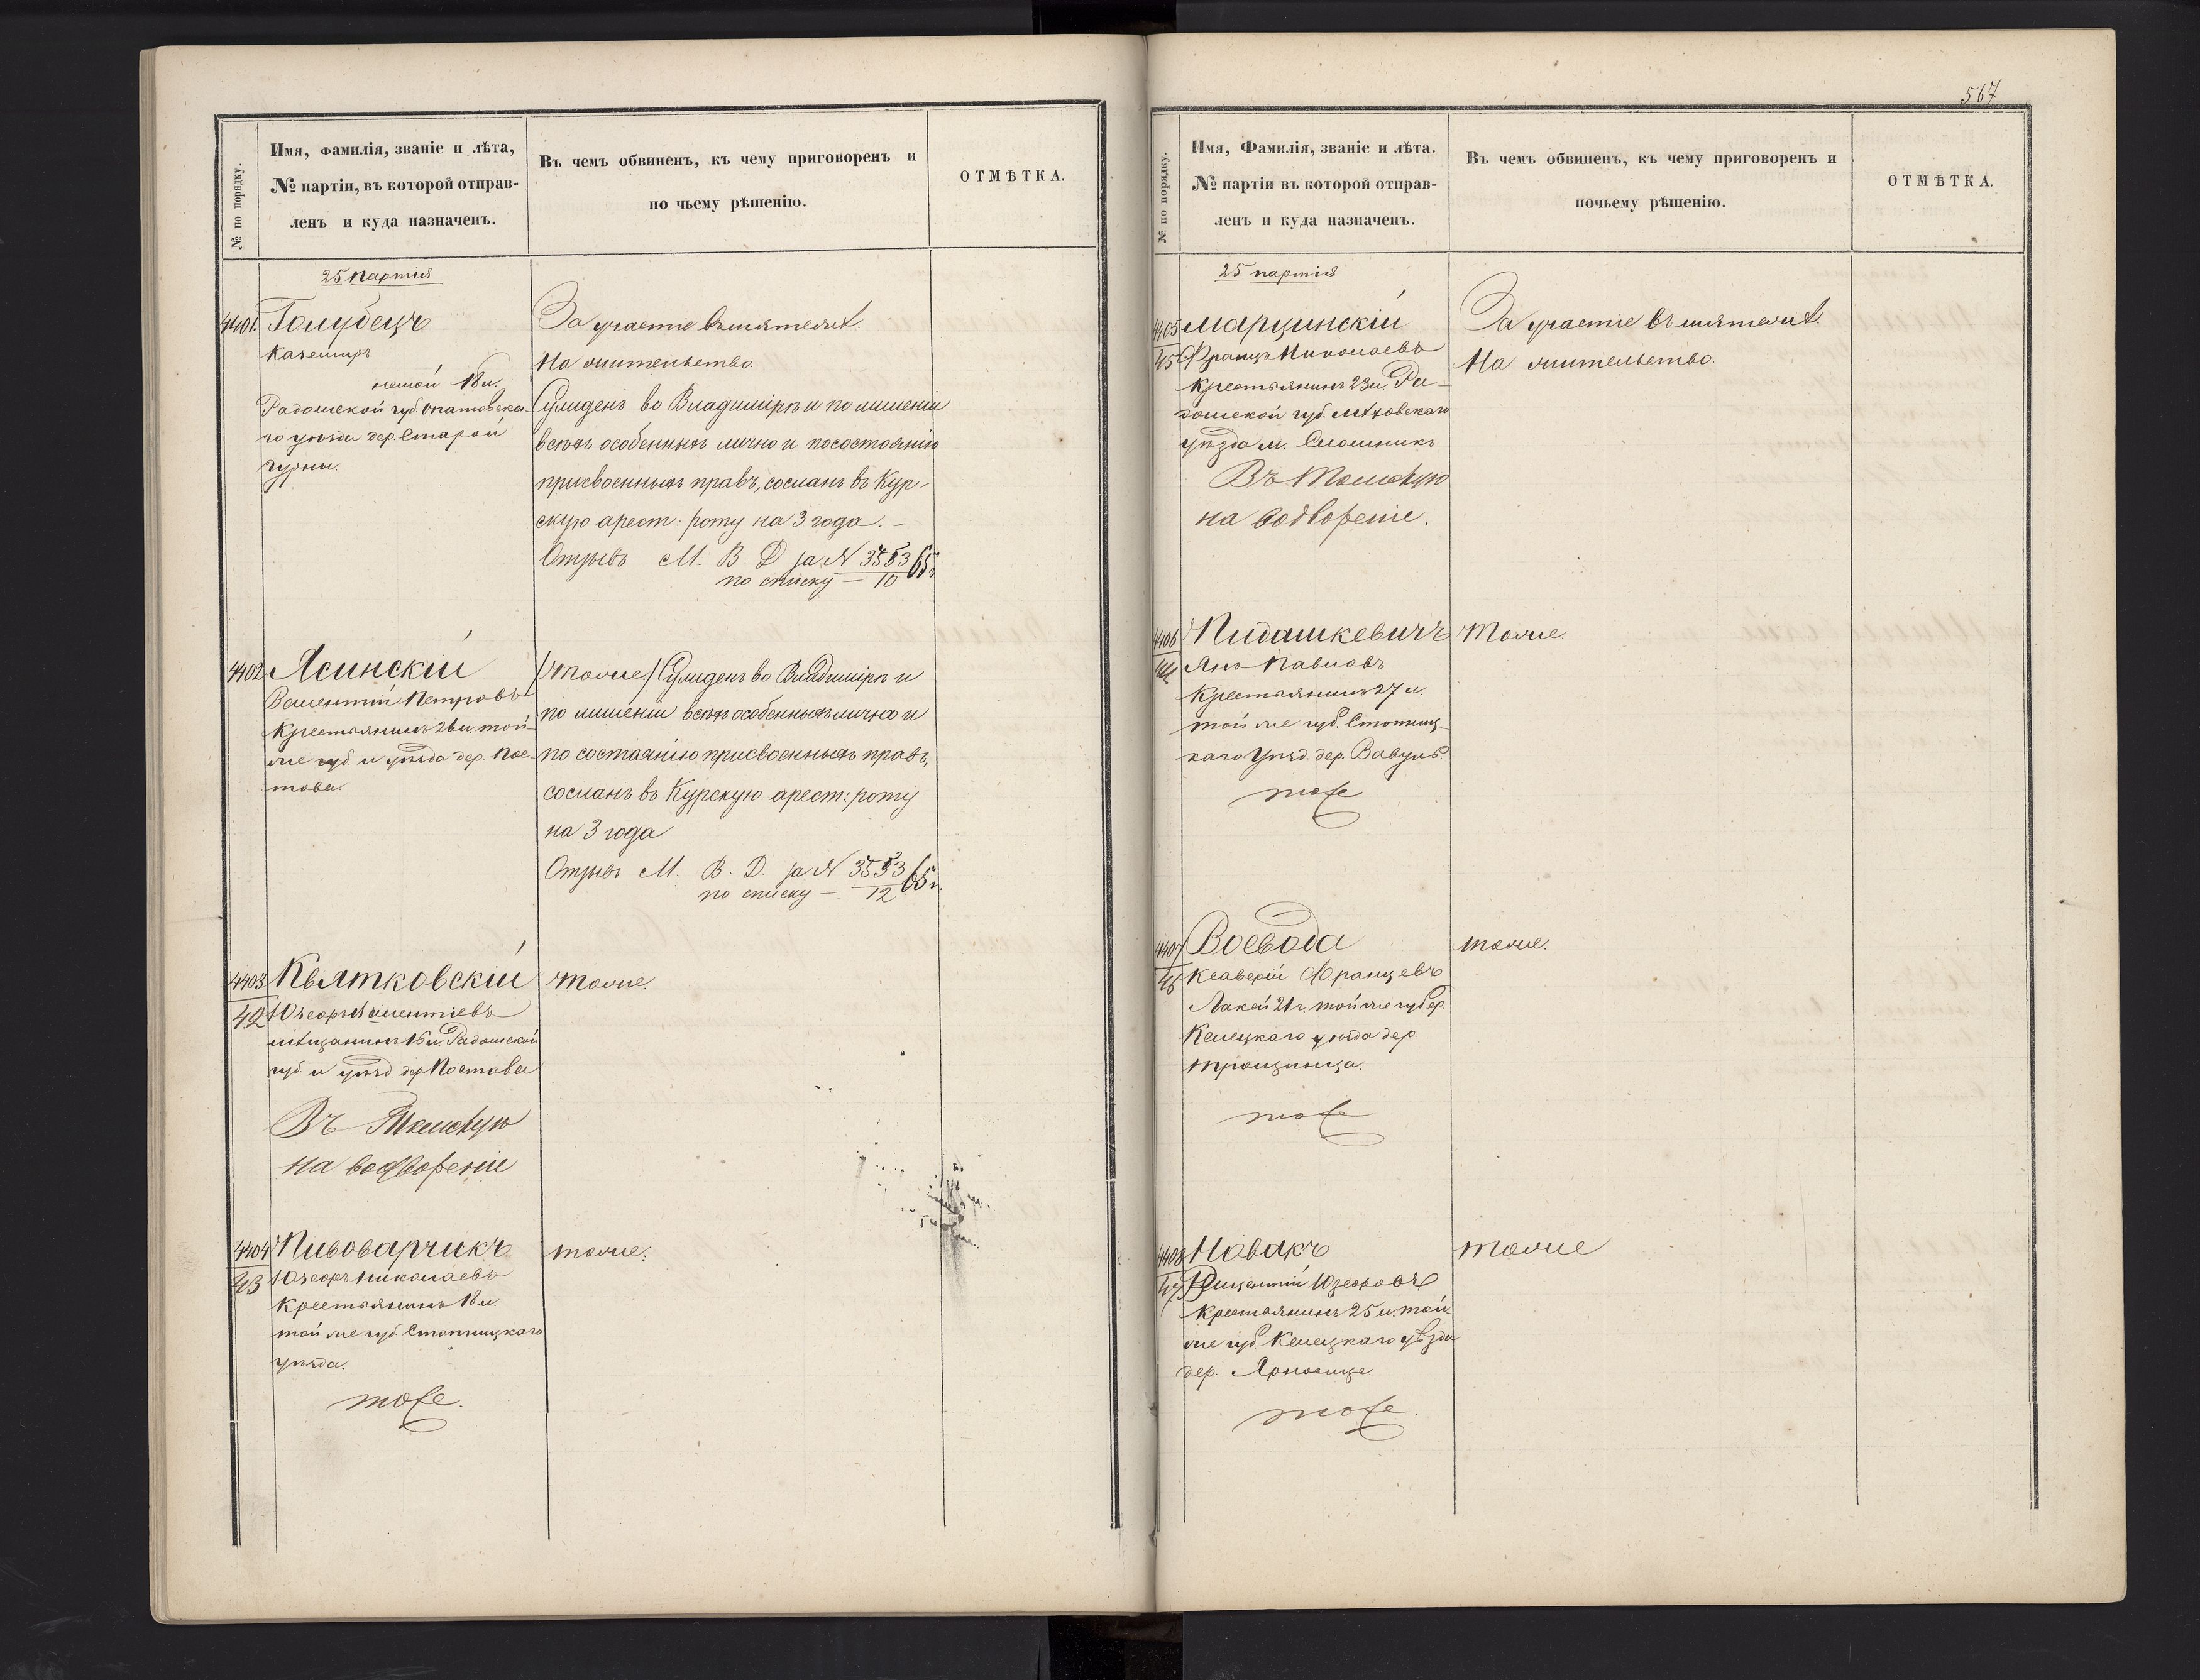 № по порядку.
Имя, фамилія, званіе и лѣта,
№ партіи, въ которой отправ-
ленъ и куда назначенъ.
Въ чемъ обвиненъ, къ чему приговоренъ и
по чьему рѣшенію.
ОТМѢТКА.
25 партія
4401. Голубецъ
Каземіръ
18 л.
Радомской губ. Опатовска-
го уѣзда дер. Старой
За участіе въ мятежѣ.
На жительство.
Сужденъ во Владимірѣ и по лишеніи
всѣхъ особенныхъ лично и по состоянію
присвоенныхъ правъ, сосланъ въ Кур-
скую арест: роту на 3 года. –
М. В. Д за N 3553 65 г.
по списку — 10
4402 Ясинскій
Валентій Петровъ
Крестьянинъ 26 л. той-
же губ. и уѣзда дер. Пос-
това.
/тоже/ Сужденъ во Владимірѣ и
по лишеніи всѣхъ особенныхъ лично и
по состоянію присвоенныхъ правъ,
сосланъ въ Курскую арест: роту
на 3 года
М. В. Д. за N 3553 65 г.
по списку — 12
4403 Квятковскій
42 Юзефъ Валентіевъ
мѣщанинъ 16 л. Радомской
губ. и уѣзд. дер Постова
Въ Томскую
на водвореніе
тоже.
4404 Пивоварчикъ
43 Юзефъ Николаевъ
Крестьянинъ 18 л.
той же губ Стопницкаго
уѣзда.
тоже.
тоже.
567
№ по порядку.
Имя, Фамилія, званіе и лѣта.
№ партіи въ которой отправ-
ленъ и куда назначенъ.
Въ чемъ обвиненъ, къ чему приговоренъ и
почьему рѣшенію.
ОТМѢТКА.
25 партія
4405 Марцинскій
45 Францъ Николаевъ
Крестьянинъ 23 л. Ра-
домской губ. Мѣховскаго
уѣзда м. Сломникъ
Въ Томскую
на водвореніе.
За участіе въ мятежѣ.
На жительство.
4406 Пидашкевичъ
44 Янъ Павловъ
Крестьянинъ 27 л.
той же губ. Стопниц-
каго Уѣзд. дер.
тоже
тоже.
4407 Воевода
46 Ксаверій Францевъ
Лакей 21 г. той же губер.
Келецкаго уѣзда дер.
тоже
тоже.
4408 Новакъ
47 Винцентій Юзефовъ
Крестьянинъ 25 л. той-
же губ. Келецкаго уѣзда
дер.
тоже.
тоже